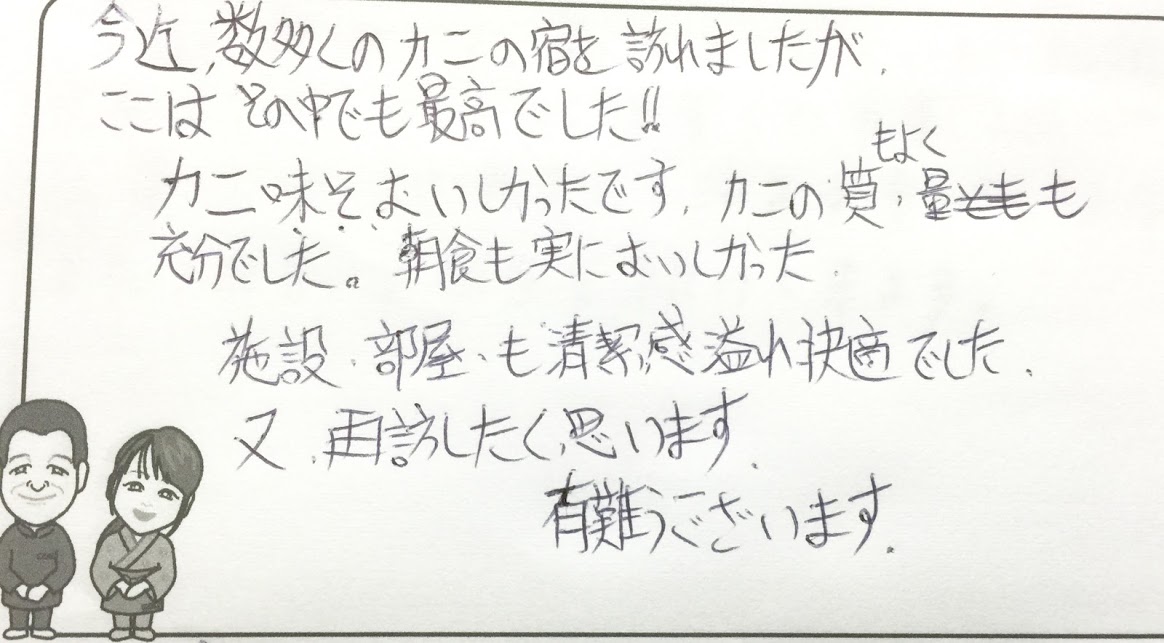 今迄、数多くのカニの宿を訪れましたが、
ここはその中でも最高でした!!
カニ味そおいしかったです、カニの質・量もよくも
充分でした。朝食も実においしかった、
施設・部屋・も清潔感溢れ快適でした、
又、再訪したく思います、
有難うございます、